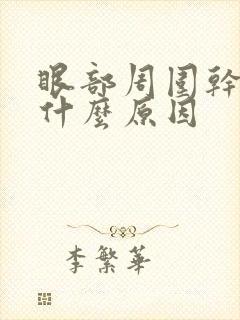 眼部周围幹
什麼原因
李繁華